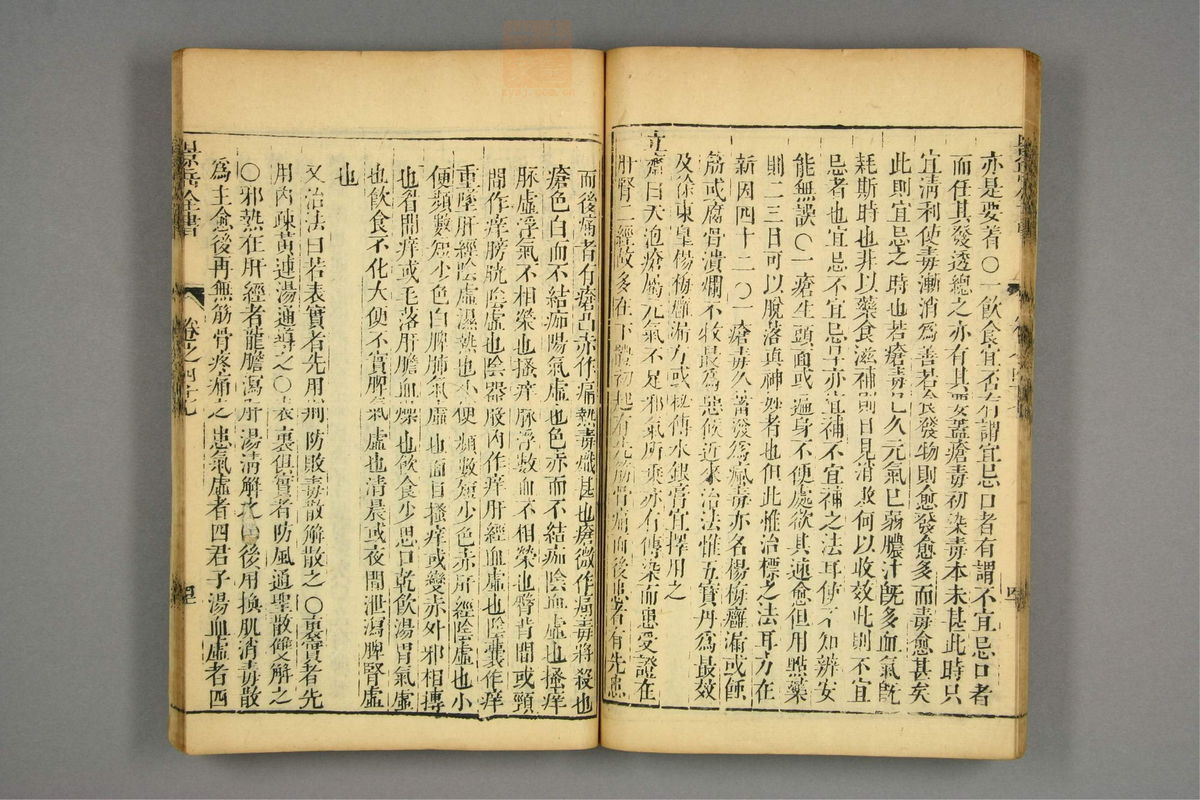 亦是要着○一飲食宜否有謂宜忌口者有謂不宜忌口者
而任其發透總之亦有其要蓋瘡毒初染毒本未甚此時只
宜清利使毒漸消為善若食發物則愈發愈多而毒愈甚矣
此則宜忌之時也若瘡毒已久元氣已弱膿汁旣多血氣旣
耗斯時也非以藥食滋補則日見消敗何以收效此則不宜
忌者也宜忌不宜忌早亦宜補不宜補之法耳使不知辨安
能無誤○一瘡生頭面或遍身不便處欲其速愈但用點藥
則二三日可以脫落眞神妙者也但此惟治標之法耳方在
新因四十二○一瘡毒久蓄發為瘋毒亦名楊梅癰漏或蝕
筋或腐骨潰爛不收最為惡候近來治法惟五寶丹為最效
及徐東皇楊梅癰漏方或秘傳水銀膏宜擇用之
立齋曰天泡瘡屬元氣不足邪氣所乘亦有傳染而患受證在
肝腎二經故多在下體初起有先筋骨痛而後患者有先患
而後痛者有瘡凸赤作痛熱毒熾甚也瘡微作痛毒將殺也
瘡色白而不結痂陽氣虛也色赤而不結痂陰血虛也搔痒
脉虛浮氣不相榮也搔痒脉浮數血不相榮也臂背間或頸
間作痒膀胱陰虛也陰器股內作痒肝經血虛也陰囊作痒
重墜肝經陰虛濕熱也小便頻數短少色赤肝經陰虛也小
便頻數短少色白脾肺氣虛也面目搔痒或變赤外邪相摶
也眉間痒或毛落肝膽血燥也飲食少思口乾飲湯胃氣虛
也飲食不化大便不實脾氣虛也清晨或夜間泄瀉脾腎虛
也
又治法曰若表實者先用荊防敗毒散解散之○裏實者先
用內疎黃連湯通導之○表裏俱實者防風通聖散雙解之
○邪熱在肝經者龍膽瀉肝湯清解之後用換肌消毒散
為主愈後再無筋骨疼痛之患氣虛者四君子湯血虛者四
景岳全書
卷之四十七